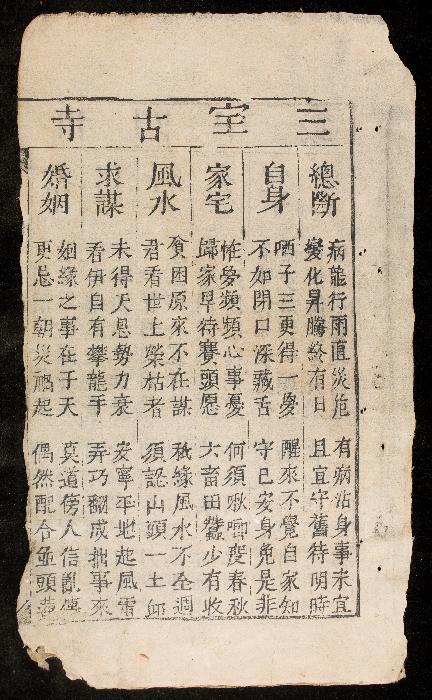 三宝古寺
總斷
病龍行雨直災危 有病沾身事未宜
變化昇騰終有日 且宜守舊待明時
自身
哂子三更得一夢 醒來不覺自家知
不如閉口深藏舌 守已安身免是非
家宅
惟夢頻頻心事憂 何須啾唧度春秋
歸家早待賽頭愿 六畜田蠶少有收
風水
貧困原來不在謀 秪緣風水不全週
君看世上榮枯者 須認山頭一土邱
求謀
未得天恩勢力衰 安寧平地起風雷
看伊自有攀龍手 弄巧翻成拙事來
婚姻
姻緣之事在于天 莫道傍人信亂傳
更忌一朝災禍起 偶然配合頭